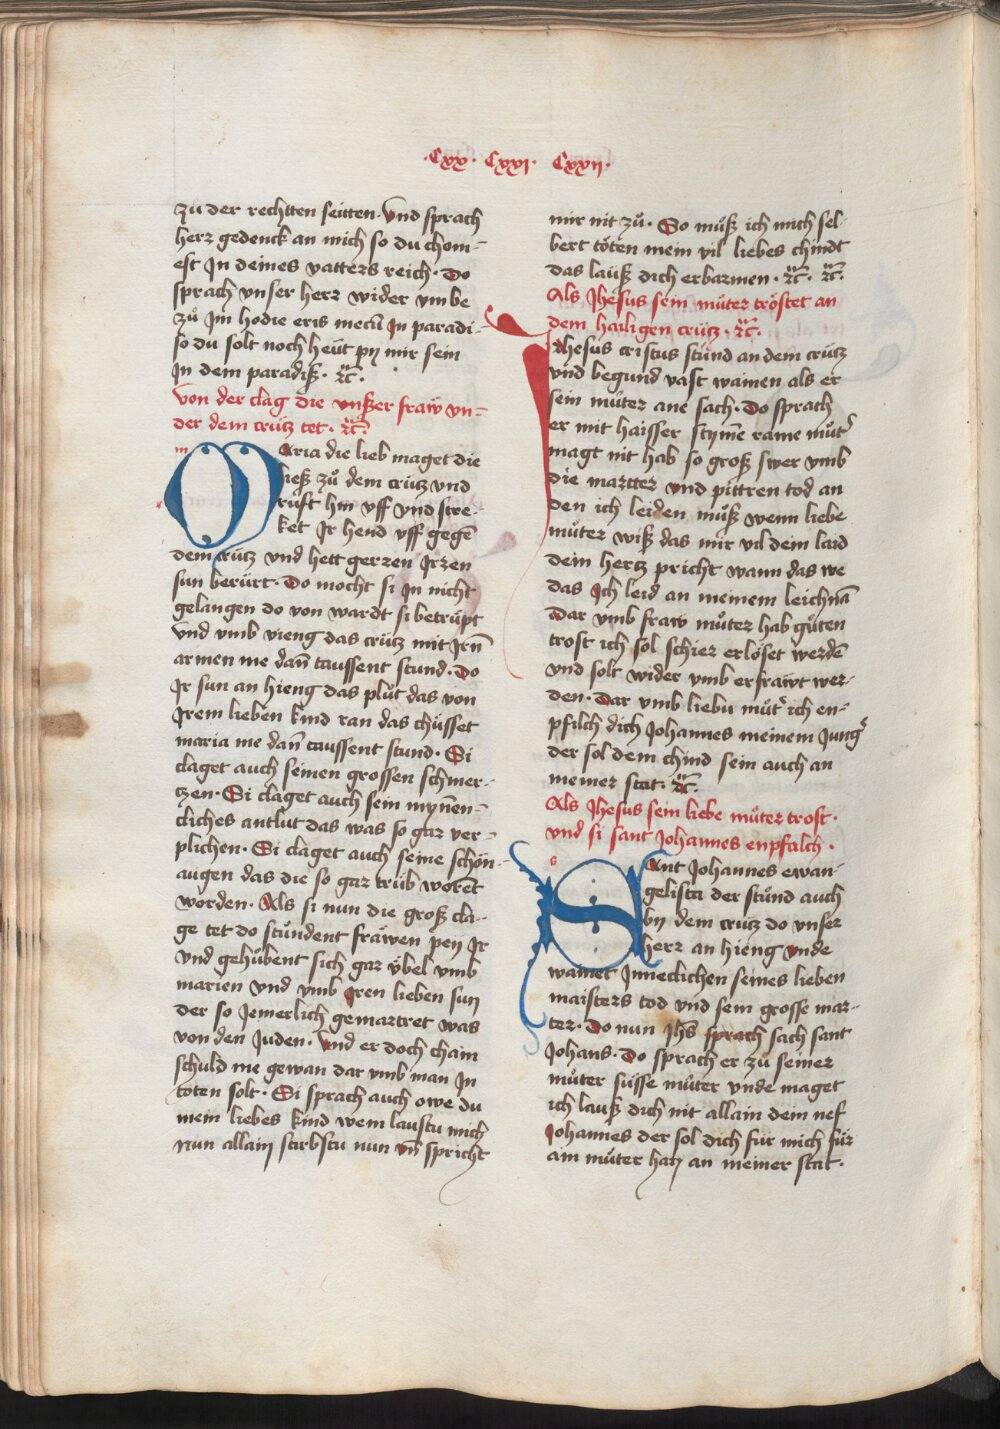 ·Cxx· Cxxı· Cxxıı·
zu der rechtten seitten· Vnd sprach
herz gedenck an mich so du chom-
est Jn deines vatters reich· Do
sprach vnser herr wider vmbe
zů Jm hodie eris mecū Jn paradi-
so du solt noch heüt pey mir sein
Jn dem paradiß· ꝛc̄·
Von der clag die vnßer fraw vn-
der dem crütz tet· ꝛc̄·
MAria die lieb maget die
ließ zů dem crütz vnd
růft hin vff vnd stre-
ket Jr hend vff gegē
dem crütz vnd hett gerren Jrzen
sun berürt· Do mocht si Jn nicht
gelangen do von wardt si betrüpt
vnd vmb vieng das crütz mit Jrn̄
armen me dan̄ taussent stund· Do
Jr sun an hieng das plůt das von
Jrem lieben kind ran das chüsset
maria me dan̄ taussent stund· Si
claget auch seinen grossen schmer-
tzen· Si claget auch sein mynēn-
cliches antlut das was so gar ver-
plichen· Si claget auch seine schön-
augen das die so gar trüb worēt
worden· Als si nun die groß cla-
ge tet do stůndent fräwen pey Jr
vnd gehůbent sich gar übel vmb
marien vnd vmb Jren lieben sun
der so Jemerlich gemartret was
von den Juden· Vnd er doch chain
schuld nie gewan dar vmb man Jn
toten solt· Si sprach auch owe du
mein liebes kind wem laustu mich
nun allain starbstu nun vn̄ spricht
mir nit zů· So můß ich mich sel-
bert töten mein vil liebes chindt
das lauß dich erbarmen· ꝛc̄· ꝛc̄·
Als Jhesus sein můter tröstet an
dem hailigen crütz· ꝛc̄·
Jhesus cristus stůnd an dem crütz
vnd begund vast wainen als er
sein můter ane sach· Do sprach
er mit haisser stym̄e raine můt᷑
magt nit hab so groß swer vmb
die martter vnd pittren tod an
den ich leiden můß wenn liebe
můter wiß das mir vil dein laid
dein hertz pricht wann das we
das Jch leid an meinem leichnā
Dar vmb fraw můter hab gůten
trost ich sol schier erlöset werdē
vnd solt wider vmb erfräwt wer-
den· Dar vmb liebů můt᷑ ich en-
pfilch dich Johannes meinem Jung᷑
der sol dem chind sein auch an
meiner stat· ꝛc̄·
Als Jhesus sein liebe můter trost·
vnd si sant Johannes enpfalch·
SAnt Johannes ewan-
gelista der stůnd auch
by dem crütz do vnser
herr an hieng vnde
wainet Jnneclichen seines lieben
maisters tod vnd sein grosse mar-
ter· Do nun Jhs sprach sach sant
Johans· Do sprach er zů seiner
můter süsse můter vnde maget
ich lauß dich nit allain dein nef
Johannes der sol dich für mich für
ain můter han an meiner stat·